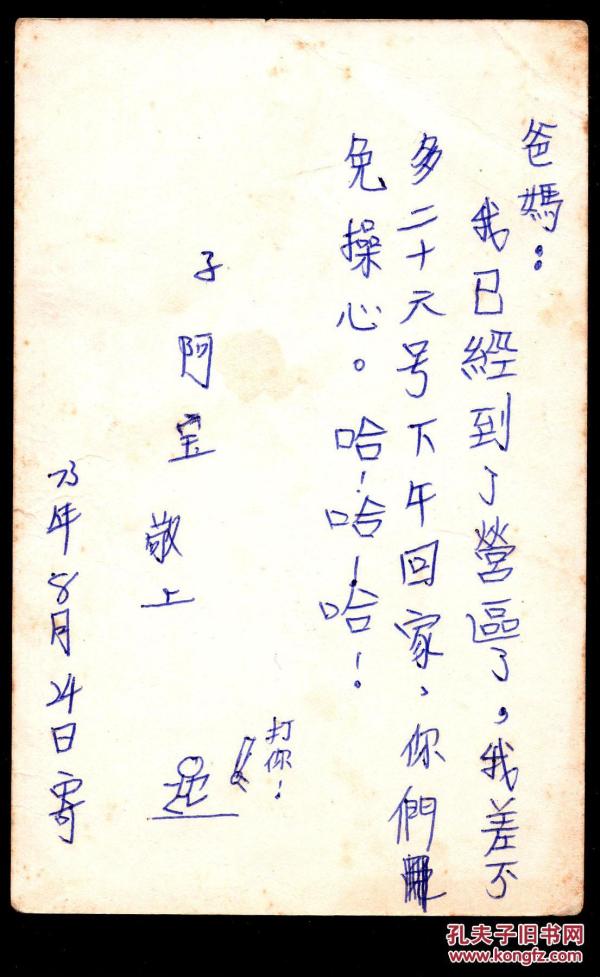 爸媽：
我已經到了營區了，我差不
多二十六号下午回家，你們
免操心。哈！哈！哈！
子 阿宝 敬上
打你！
73年8月24日寄
孔夫子旧书网
www.kongfz.com